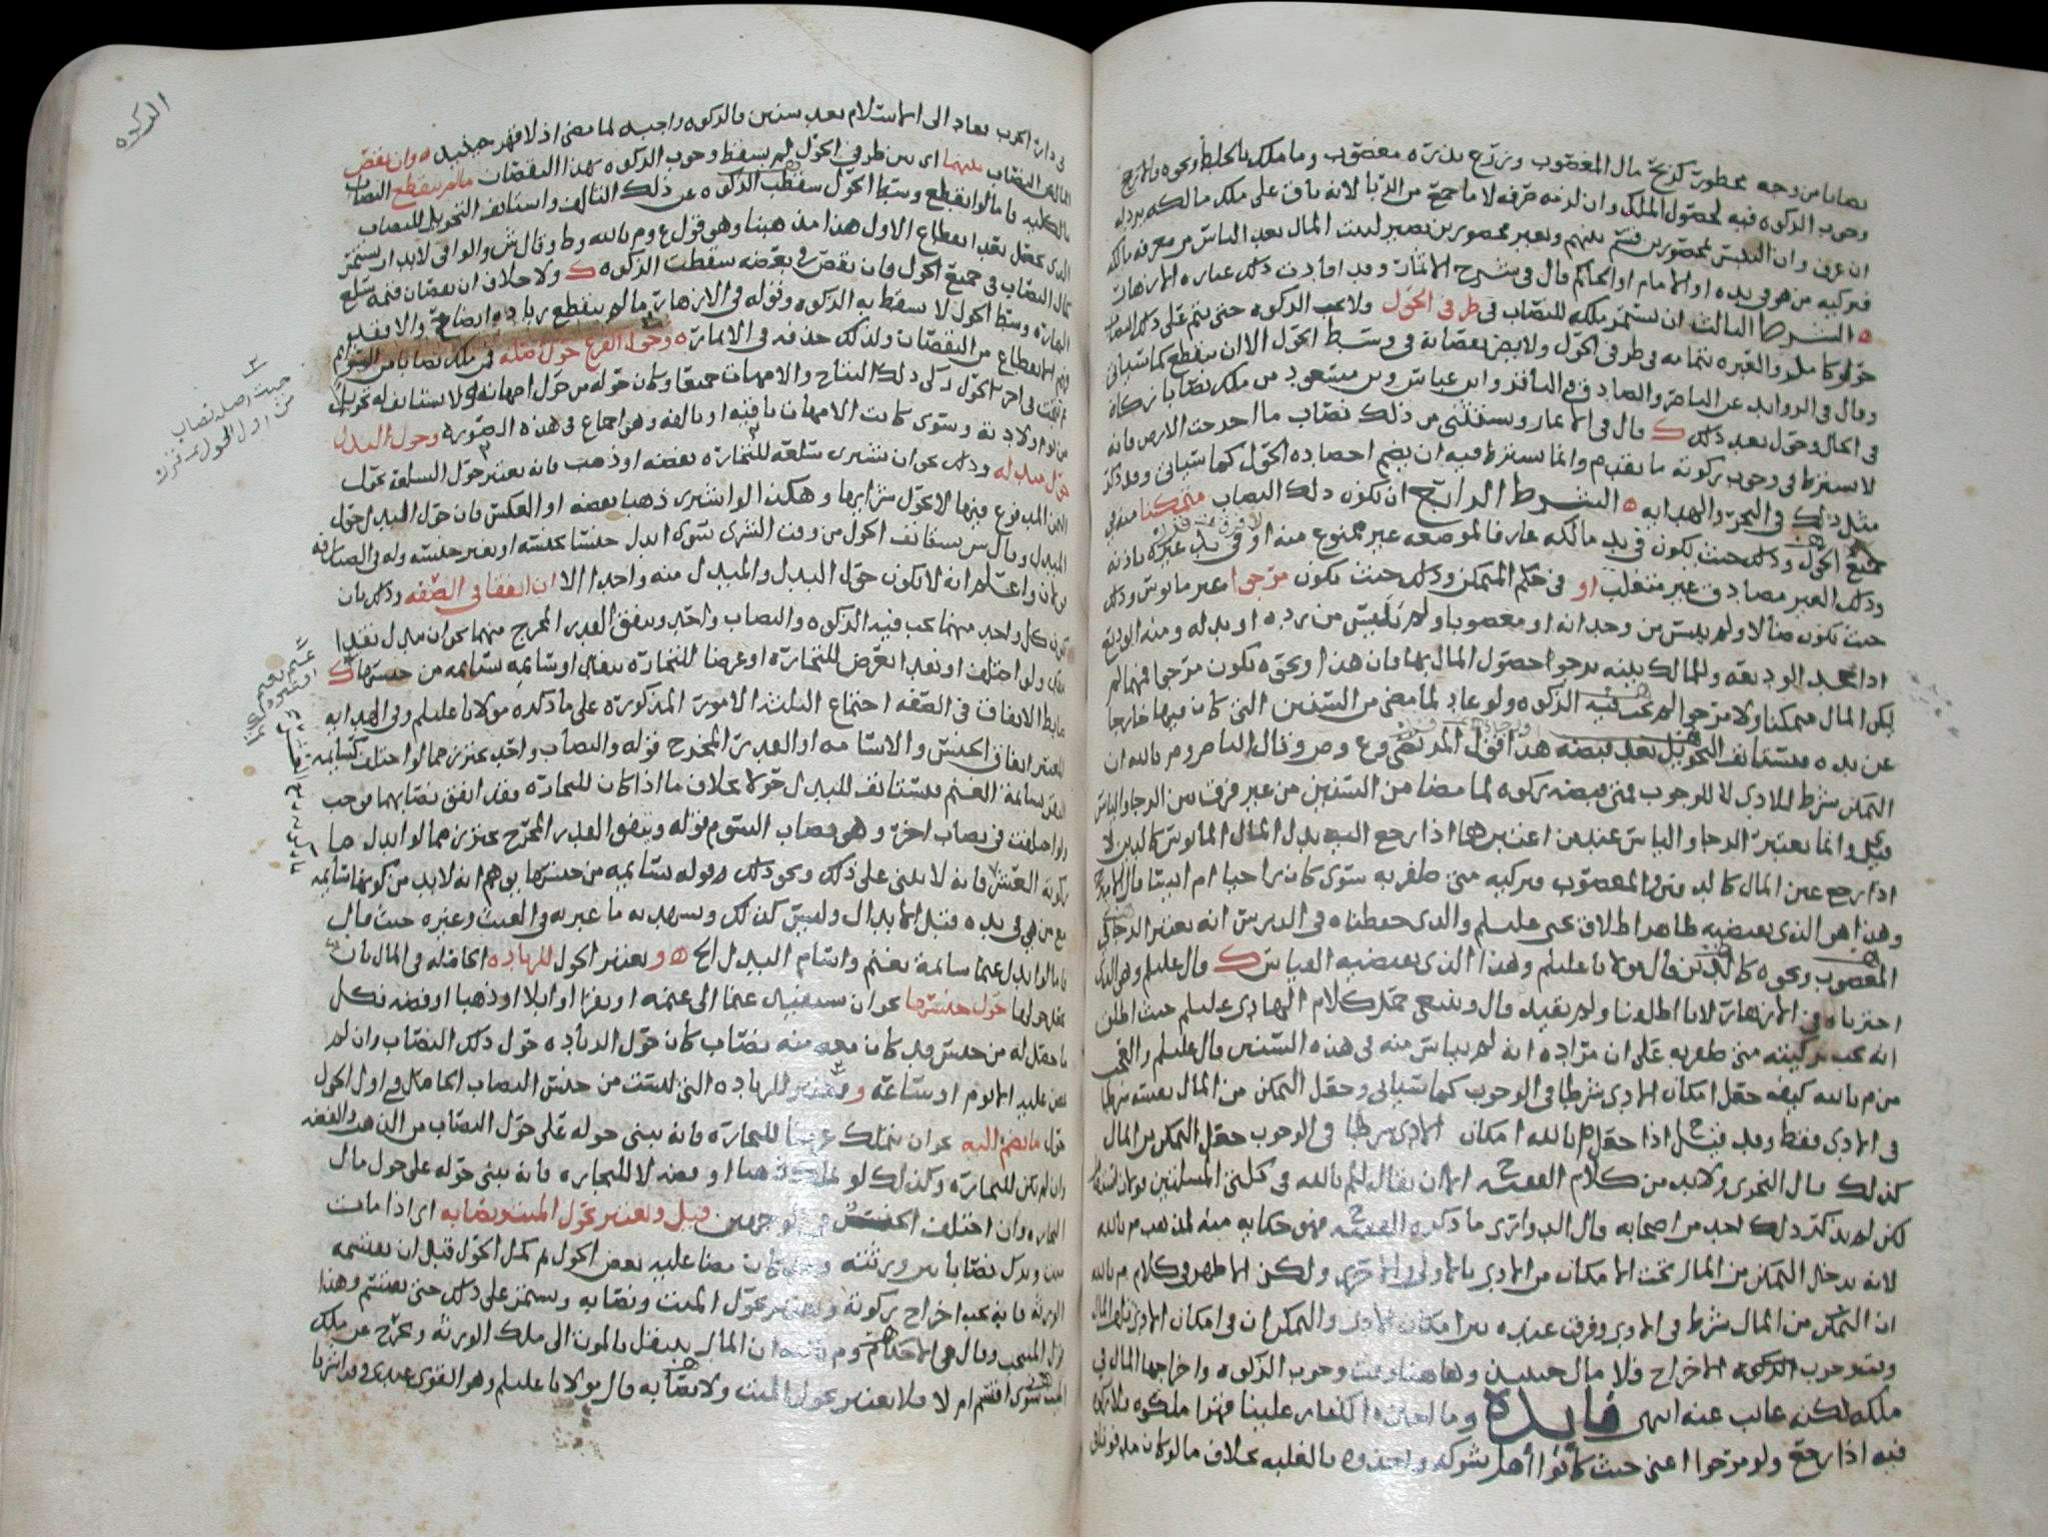 نصابا من وجه محظور كربح مال المغصوب وزرع بذره مغصوب وما ملك بالخلط ونحوه
وجوب الزكوه فيه لحصول الملك وان لزمه صرفه لا ما جمع من الربا لانه باق على ملك مالكه يرد له
ان عرف وان التبس بمحصورين قسم بينهم وبغير محصورين تصير لبيت المال بعد الياس من معرفه مالكه
فيزكيه من هو في يده او الامام او الحاكم قال في شرح الاثمار وقد افادت ذلك عباره الازهار
الشرط الثالث ان يستمر ملكه للنصاب في طرفي الحول ولا تجب الزكوه حتى يتم على ذلك النصاب
حولا كاملا والعبره بتمامه في طرفي الحول ولا يضر نقصانه في وسط الحول الا ان ينقطع كما سياتي
وقال في الزوائد عن الناصر والصادق والباقر وابن عباس وابن مسعود من ملك نصابا زكاه
في الحال وحول بعد ذلك قال في الاثمار ويستثنى من ذلك نصاب ما اخرجت الارض فانه
لا يشترط في وجوب زكوته ما تقدم وانما يشترط فيه ان يضم احصاده الحول كما سياتي وقد ذكر
مثل ذلك في البحر والهدايه الشرط الرابع ان يكون ذلك النصاب متمكنا منه في
جميع الحول وذلك حيث يكون في يد مالكه عارفا لموضعه غير ممنوع منه او في يد غيره باذنه
وذلك الغير مصادق غير متغلب او في حكم المتمكن وذلك حيث يكون مرجوا غير مايوس وذلك
حيث يكون ضالا ولم ييئس من وجدانه او مغصوبا ولم ييئس من رده او بدله ومنه الوديع
اذا جحد الوديعه وللمالك بينه يرجوا حصول المال بها فان هذا ونحوه يكون مرجوا فمهما لم
يكن المال متمكنا ولا مرجوا لم تجب فيه الزكوه ولو عاد لما مضى من السنين التي كان فيها خارجا
عن يده فيستانف التحويل بعد قبضه هذا قول المرتضى وع وص وقال الناصر وم بالله ان
التمكن شرط للادى لا للوجوب فمتى قبضه زكوه لما مضا من السنين من غير فرق بين الرجا والياس
قيل وانما يعتبر الرجا والياس عند من اعتبرهما اذا رجع اليه بدل المال المايوس كالدين لا
اذا رجع عين المال كالدفين والمغصوب فيزكيه متى ظفر به سوى كان راجيا ام ايسا قال
وهذا هو الذي يقتضيه ظاهر اطلاق يحيى عليلم والذي حفظناه في الدرس انه يعتبر الرجا في
المغصوب ونحوه كالدين قال مولانا عليلم وهذا الذي يقتضيه القياس قال عليلم وهو الذي
اخترناه في الازهار لانا اطلقنا ولم نقيد قال وينبغي حمل كلام الهادي عليلم حيث اطلق
انه يجب تزكيته متى ظفر به على ان مراده انه لم يياس منه في هذه السنين قال عليلم والعجب
من م بالله كيف جعل امكان الادى شرطا في الوجوب كما سياتي وجعل التمكن من المال بعينه شرطا
في الادى فقط وقد قيل اذا جعل م بالله امكان الادى شرطا في الوجوب جعل التمكن من المال
كذلك قال النجرى ولابد من كلام الفقيه الا ان يقال لم بالله في كلتي المسئلتين قولان
لكن لم يذكر ذلك احد من اصحابه قال الدواري ما ذكره الفقيه فهو حكايه منه لمذهب م بالله
لانه يدخل التمكن من المال تحت الامكان من الادى بالاولى والاحرى ولكن الاظهر في كلام م بالله
ان التمكن من المال شرط في الادى وفرق عنده بين امكان الادى والتمكن ان في امكان الادى تلف المال
وبقي وجوب الزكوه الاخراج فلا مال حينئذ وهاهنا وجبت وجوب الزكوه واخراجها المال في
ملكه لكنه غائب عنه انتهى فايده وما اخذه الكفار علينا قهرا ملكوه فلا زكوه
فيه اذا رجع ولو مرجوا اعني حيث كانوا اهل شوكه واخذوه بالغلبه بخلاف ما لو كان مدفونا
الزكوه
في دار الحرب فعاد الى الاسلام بعد سنين فالزكوه واجبه لما مضى اذ لا قهر حينئذ وان نقص
المال عن النصاب بينهما اى بين طرفي الحول لم يسقط وجوب الزكوه بهذا النقصان ما لم ينقطع النصاب
بالكليه فاما لو انقطع وسط الحول سقطت الزكوه عن ذلك التالف واستانف التحويل للنصاب
الذي حصل بعد انقطاع الاول هذا مذهبنا وهو قول ع وم بالله وط وقال ش والوافي لابد ان يستمر
كمال النصاب في جميع الحول فان نقص في بعضه سقطت الزكوه ولا خلاف ان نقصان قيمه سلع
التجاره وسط الحول لا يسقط به الزكوه وقوله في الازهار ما لم ينقطع زياده ايضاح والا فقد
فهم الانقطاع من النقصان ولذلك حذفه في الاثمار وحول الفرع حول اصله فمن ملك نصابا من السوائم
ثم نتجت في اخر الحول زكى ذلك النتاج والامهات جميعا وكان حوله من حول امهاته ولا يستانف له تحويلا
من يوم ولادته وسوى كانت الامهات باقيه او تالفه وهو اجماع في هذه الصوره وحول البدل
حول مبدله وذلك نحو ان يشترى سلعه للتجاره بفضه او ذهب فانه يعتبر حول السلعه بحول
الثمن المدفوع فيها لا بحول شرايها وهكذا لو اشترى ذهبا بفضه او العكس فان حول البدل حول
المبدل وقال ش يستانف الحول من وقت الشرى سوى ابدل جنسا بجنسه او بغير جنسه
واعلم انه لا يكون حول البدل والمبدل منه واحدا الا ان اتفقا في الصفه وذلك بان
يكون كل واحد منهما تجب فيه الزكوه والنصاب واحد ويتفق القدر المخرج منهما نحو ان يبدل نقدا
بنقد ولو اختلف او نقدا بعرض للتجاره او عرضا للتجاره بنقد او سائمه بسائمه من جنسها
ضابط الاتفاق في الصفه اجتماع الثلثه الامور المذكوره على ما ذكره مولانا عليلم وفي الهدايه
المعتبر اتفاق الجنس والاسامه او القدر المخرج قوله والنصاب واحد يحترز مما لو اختلف كسائمه
البقر بسائمه الغنم فيستانف للبدل حولا بخلاف ما اذا كان للتجاره فقد اتفق نصابهما فوجب
ولو اختلفت في نصاب اخر وهو نصاب السوم قوله ويتفق القدر المخرج يحترز مما لو ابدل ما
زكوته العشر فانه لا يبنى على ذلك ونحو ذلك وقوله بسائمه من جنسها يوهم انه لابد من كونها سائمه
مع من هي في يده قبل الابدال وليس كذلك ويشهد به ما عبر به في الغيث وغيره حيث قال
فاما لو ابدل غنما سائمه بغنم واسام البدل الخ ويعتبر الحول للزياده الحاصله في المال بان
يجعل حولها حول جنسها نحو ان يستفيد غنما الى غنمه او بقرا او ابلا او ذهبا او فضه فكل
ما حصل له من جنس قد كان معه منه نصاب كان حول الزياده حول ذلك النصاب وان لم
يمض عليه الا يوم او ساعه ويعتبر للزياده التي ليست من جنس النصاب الحاصل في اول الحول
حول ما تضم اليه نحو ان يتملك عرضا للتجاره فانه يبني حوله على حول النصاب من الذهب والفضه
وان لم يكن للتجاره وكذلك لو تملك ذهبا او فضه لا للتجاره فانه يبني حوله على حول مال
التجاره وان اختلف الجنس في الوجهين قيل ويعتبر بحول الميت ونصابه اى اذا مات
ميت وترك نصابا بين ورثته وقد كان مضا عليه بعض الحول ثم كمل الحول قبل ان يقتسمه
الورثه فانه يجب اخراج زكوته ويعتبر بحول الميت ونصابه ويستمر على ذلك حتى يقتسم وهذا
قول المنتخب وقال في الاحكام وم بالله ان المال ينتقل بالموت الى ملك الورثه ويخرج عن ملك
الميت سوى اقتسم ام لا فلا يعتبر بحول الميت ولا نصابه قال مولانا عليلم وهو القوى عندي وقد اشرنا